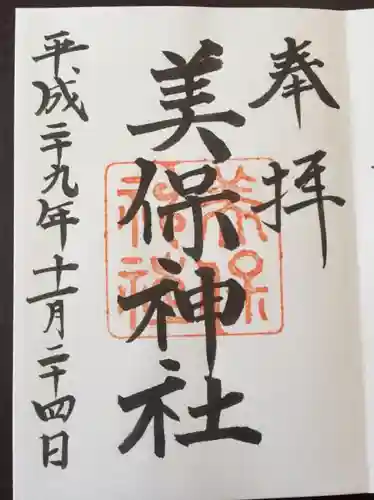 奉拝
美保神社
平成二十九年十一月二十四日